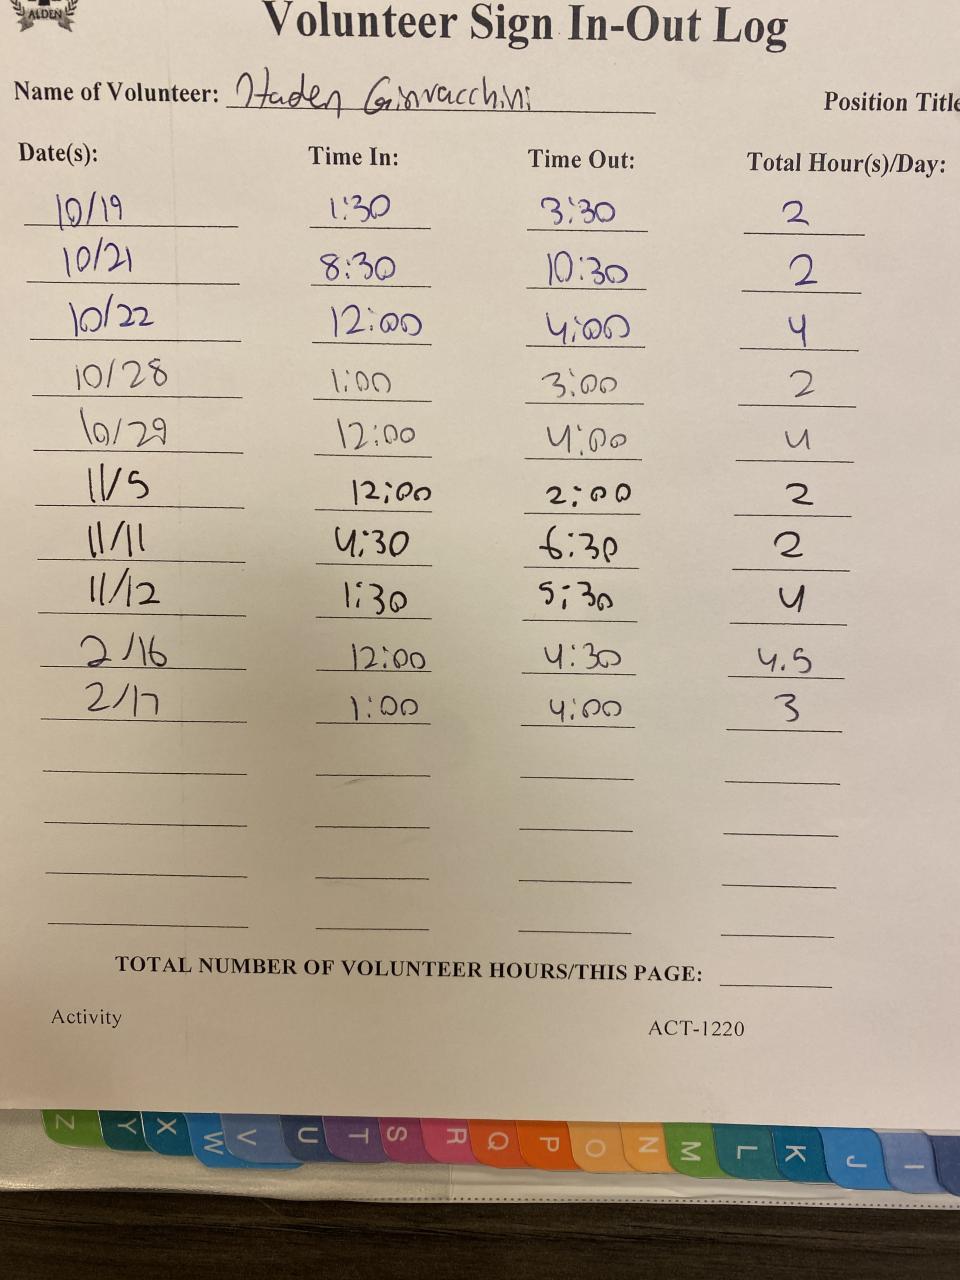 ALDEN
Volunteer Sign In-Out Log
Name of Volunteer: Haden Giovacchini Position Title
Date(s): Time In: Time Out: Total Hour(s)/Day:
10/19 1:30 3:30 2
10/21 8:30 10:30 2
10/22 12:00 4:00 4
10/28 1:00 3:00 2
10/29 12:00 4:00 4
11/5 12:00 2:00 2
11/11 4:30 6:30 2
11/12 1:30 5:30 4
2/16 12:00 4:30 4.5
2/17 1:00 4:00 3
TOTAL NUMBER OF VOLUNTEER HOURS/THIS PAGE:
Activity ACT-1220
Z Y X W V U T S R Q P O N M L K J I